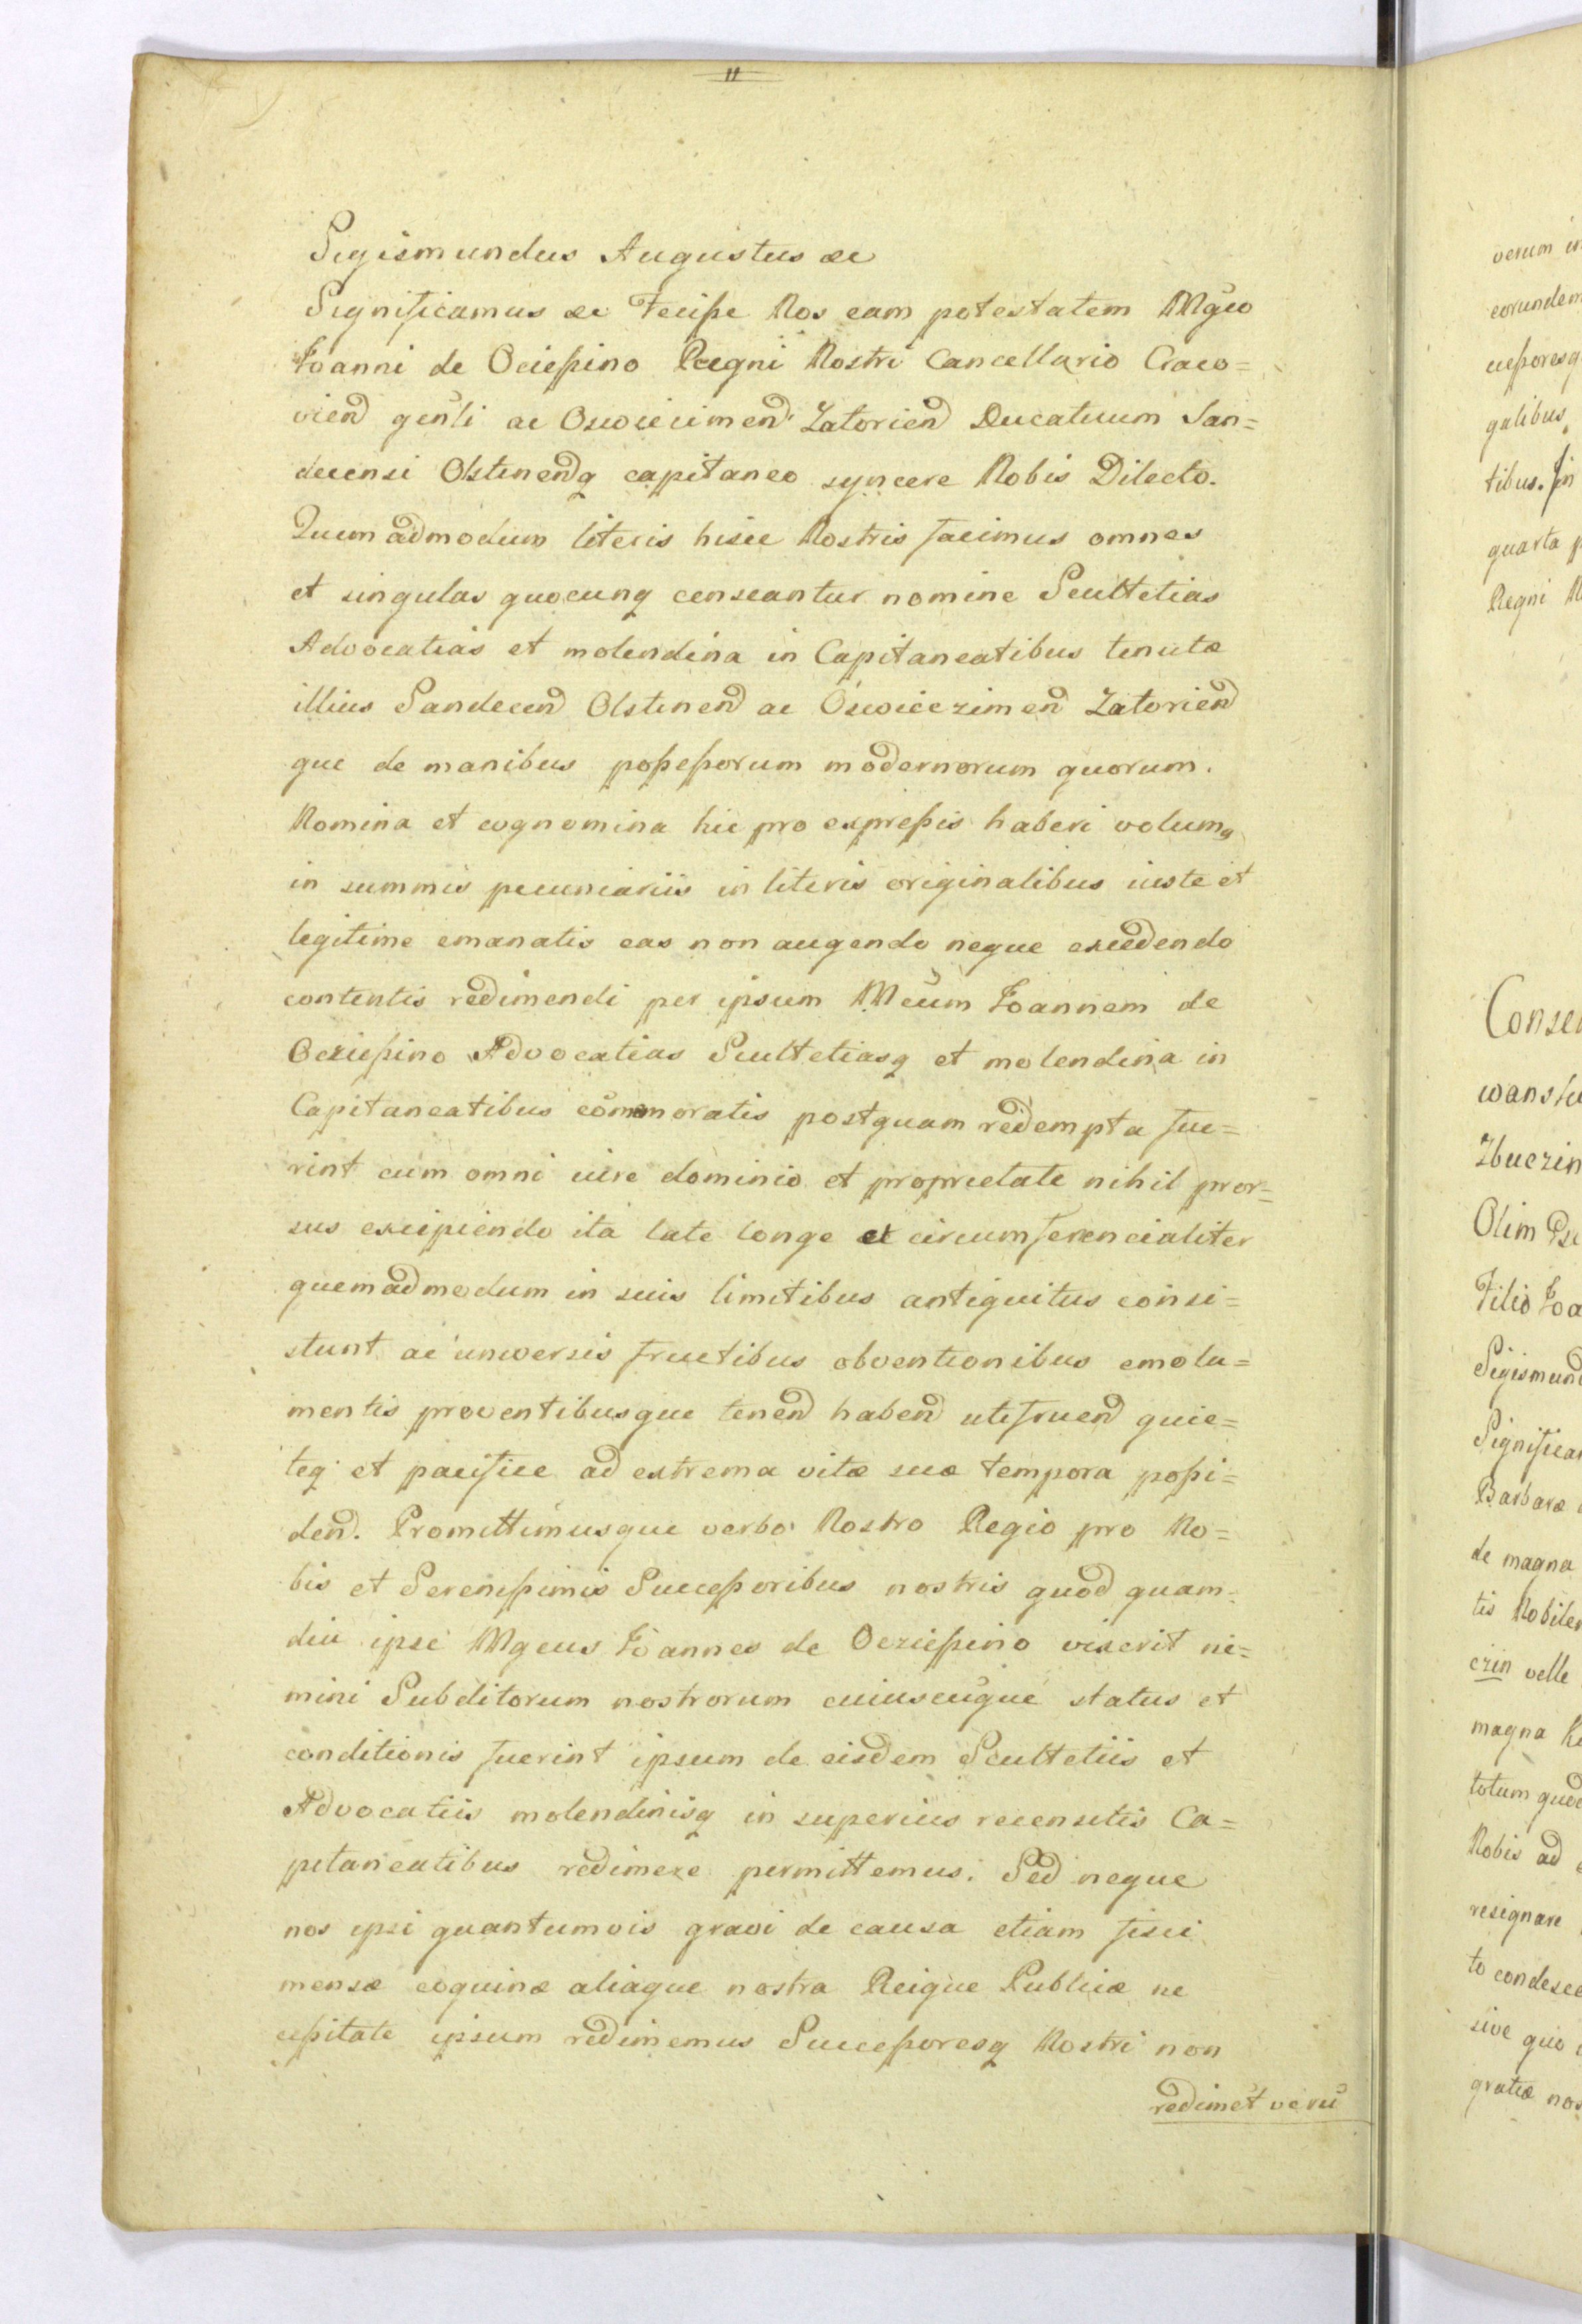 11
Sigismundus Augustus &c
Significamus &c Fecisse Nos eam potestatem Mgco
Joanni de Ociessino Regni Nostri Cancellario Craco=
vien̄ gen̄li ac Oswiecimen̄ Zatorien̄ Ducatuum San=
decensi Olstinenq capitaneo syncere Nobis Dilecto.
Quemadmodum literis hisce Nostris facimus omnes
et singulas quocunq censeantur nomine Scultetias
Advocatias et molendina in Capitaneatibus tenutæ
illius Sandecen̄ Olstinen̄ ac Oswieczimen̄ Zatorien̄
que de manibus possessorum modernorum quorum.
Nomina et cognomina hic pro expressis haberi volumq
in summis pecuniariis in literis originalibus iuste et
legitime emanatis eas non augendo neque excedendo
contentis redimendi per ipsum Mcum Joannem de
Ocziessino Advocatias Scultetiasq et molendina in
Capitaneatibus com̄moratis postquam redempta fue=
rint cum omni iure dominio et proprietate nihil pror=
sus excipiendo ita late longe et circumferencialiter
quemadmodum in suis limitibus antiquitus consi=
stunt ac universis fructibus obventionibus emolu=
mentis proventibusque tenen̄ haben̄ utifruen̄ quie=
teq et pacifice ad extrema vitæ suæ tempora possi=
den̄. Promittimusque verbo Nostro Regio pro No=
bis et Serenissimis Successoribus nostris quod quam=
diu ipse Mgcus Joannes de Ocziessino vixerit ne=
mini Subditorum nostrorum cuiuscūque status et
conditionis fuerint ipsum de eisdem Scultetiis et
Advocatiis molendinisq in superius recensitis Ca=
pitaneatibus redimere permittemus. Sed neque
nos ipsi quantumvis gravi de causa etiam fisci
mensæ coquinæ aliaque nostra Reique Publicæ ne
cessitate ipsum redimemus Successoresq Nostri non
redimet verū
verum in
eorundem
cessoresq
galibus
tibus. In
quarta p
Regni N
Consen
wansk
Zbuczin
Olim
Filio Joa
Sigismund
Significa
Barbaræ
de magna
tis Nobile
czin velle
magna
totum quod
Nobis ad
resignare
to condesce
sive quo
gratiæ nos